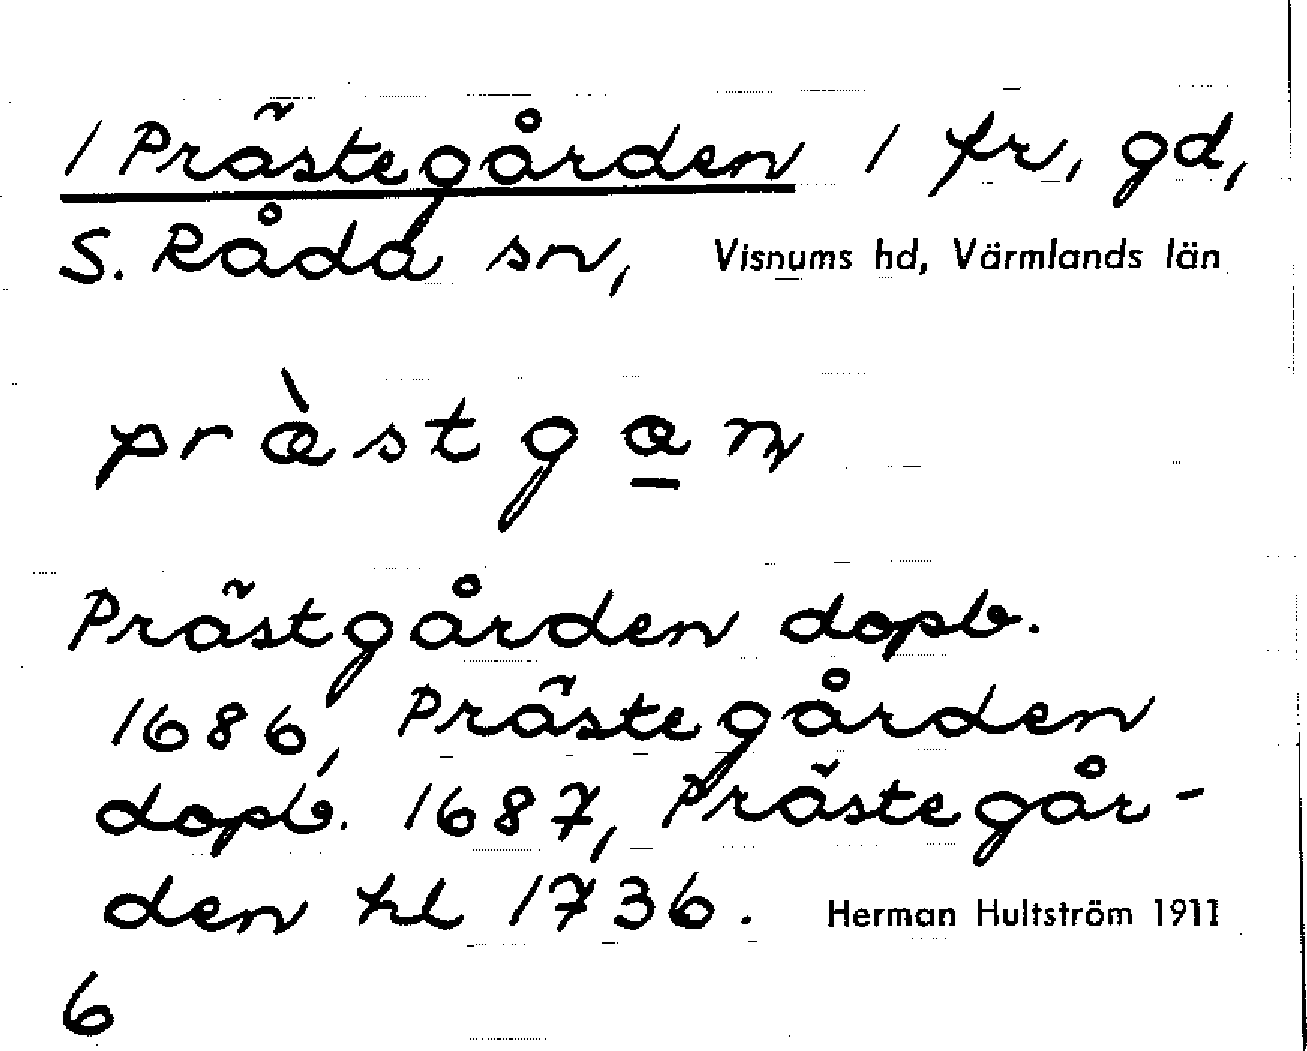 1 Prästegården 1 fr, gd,
S. Råda sn, Visnums hd, Värmlands län
præ̀stga̲ɳ
Prästgården dopb.
1686, Prästegården
dopb. 1687, Prästegår-
den hl 1736. Herman Hultström 1911
6